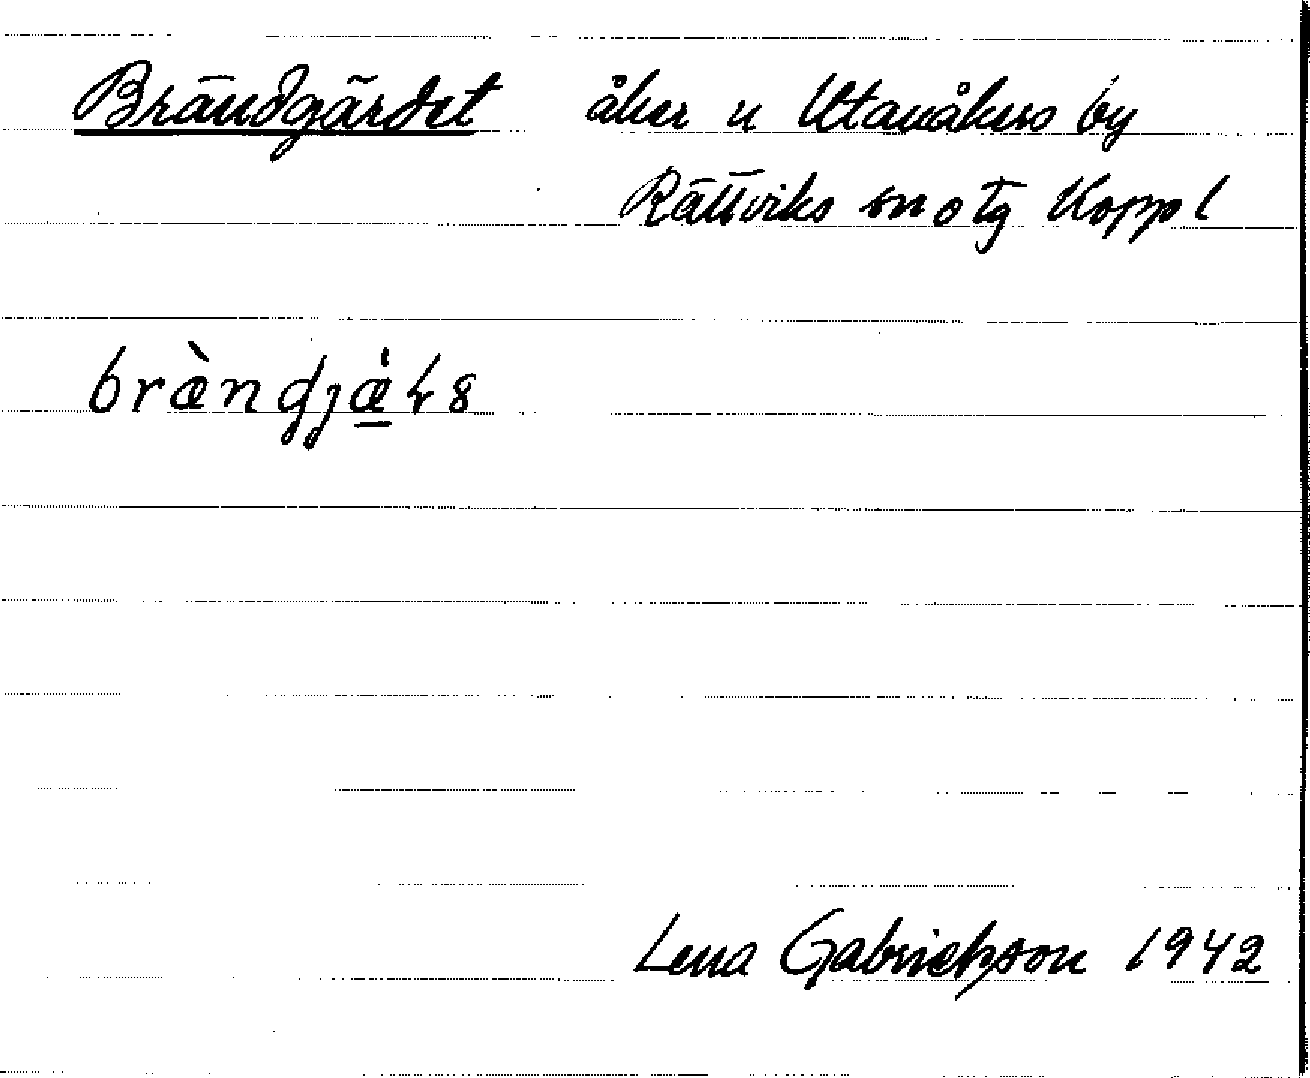 Brändgärdet åker u Utanåkers by
Rättviks sn o tg Kopp l
Lena Gabrielsson 1942